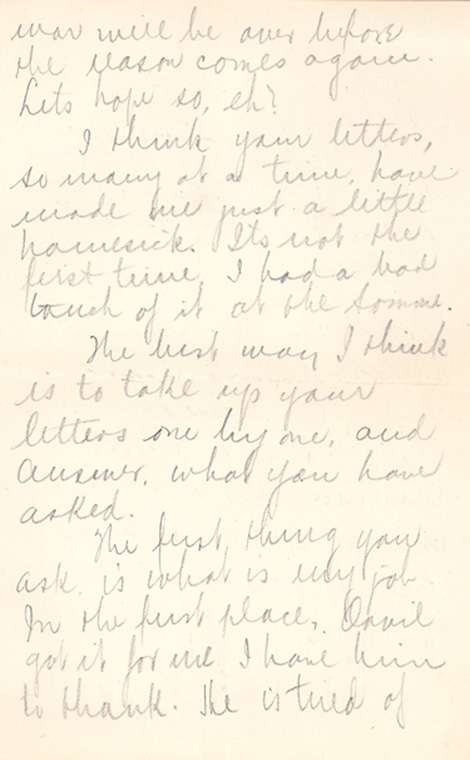 war will be over before
the season comes again.
Lets hope so, eh?
I think your letters,
so many at a time, have
made me just a little
homesick. Its not the
first time, I had a bad
touch of it at the Somme.
The best way I think
is to take up your
letters one by one, and
answer, what you have
asked.
The first thing you
ask, is what is my job.
In the first place, Orvil
got it for me I have him
to thank. He is tired of